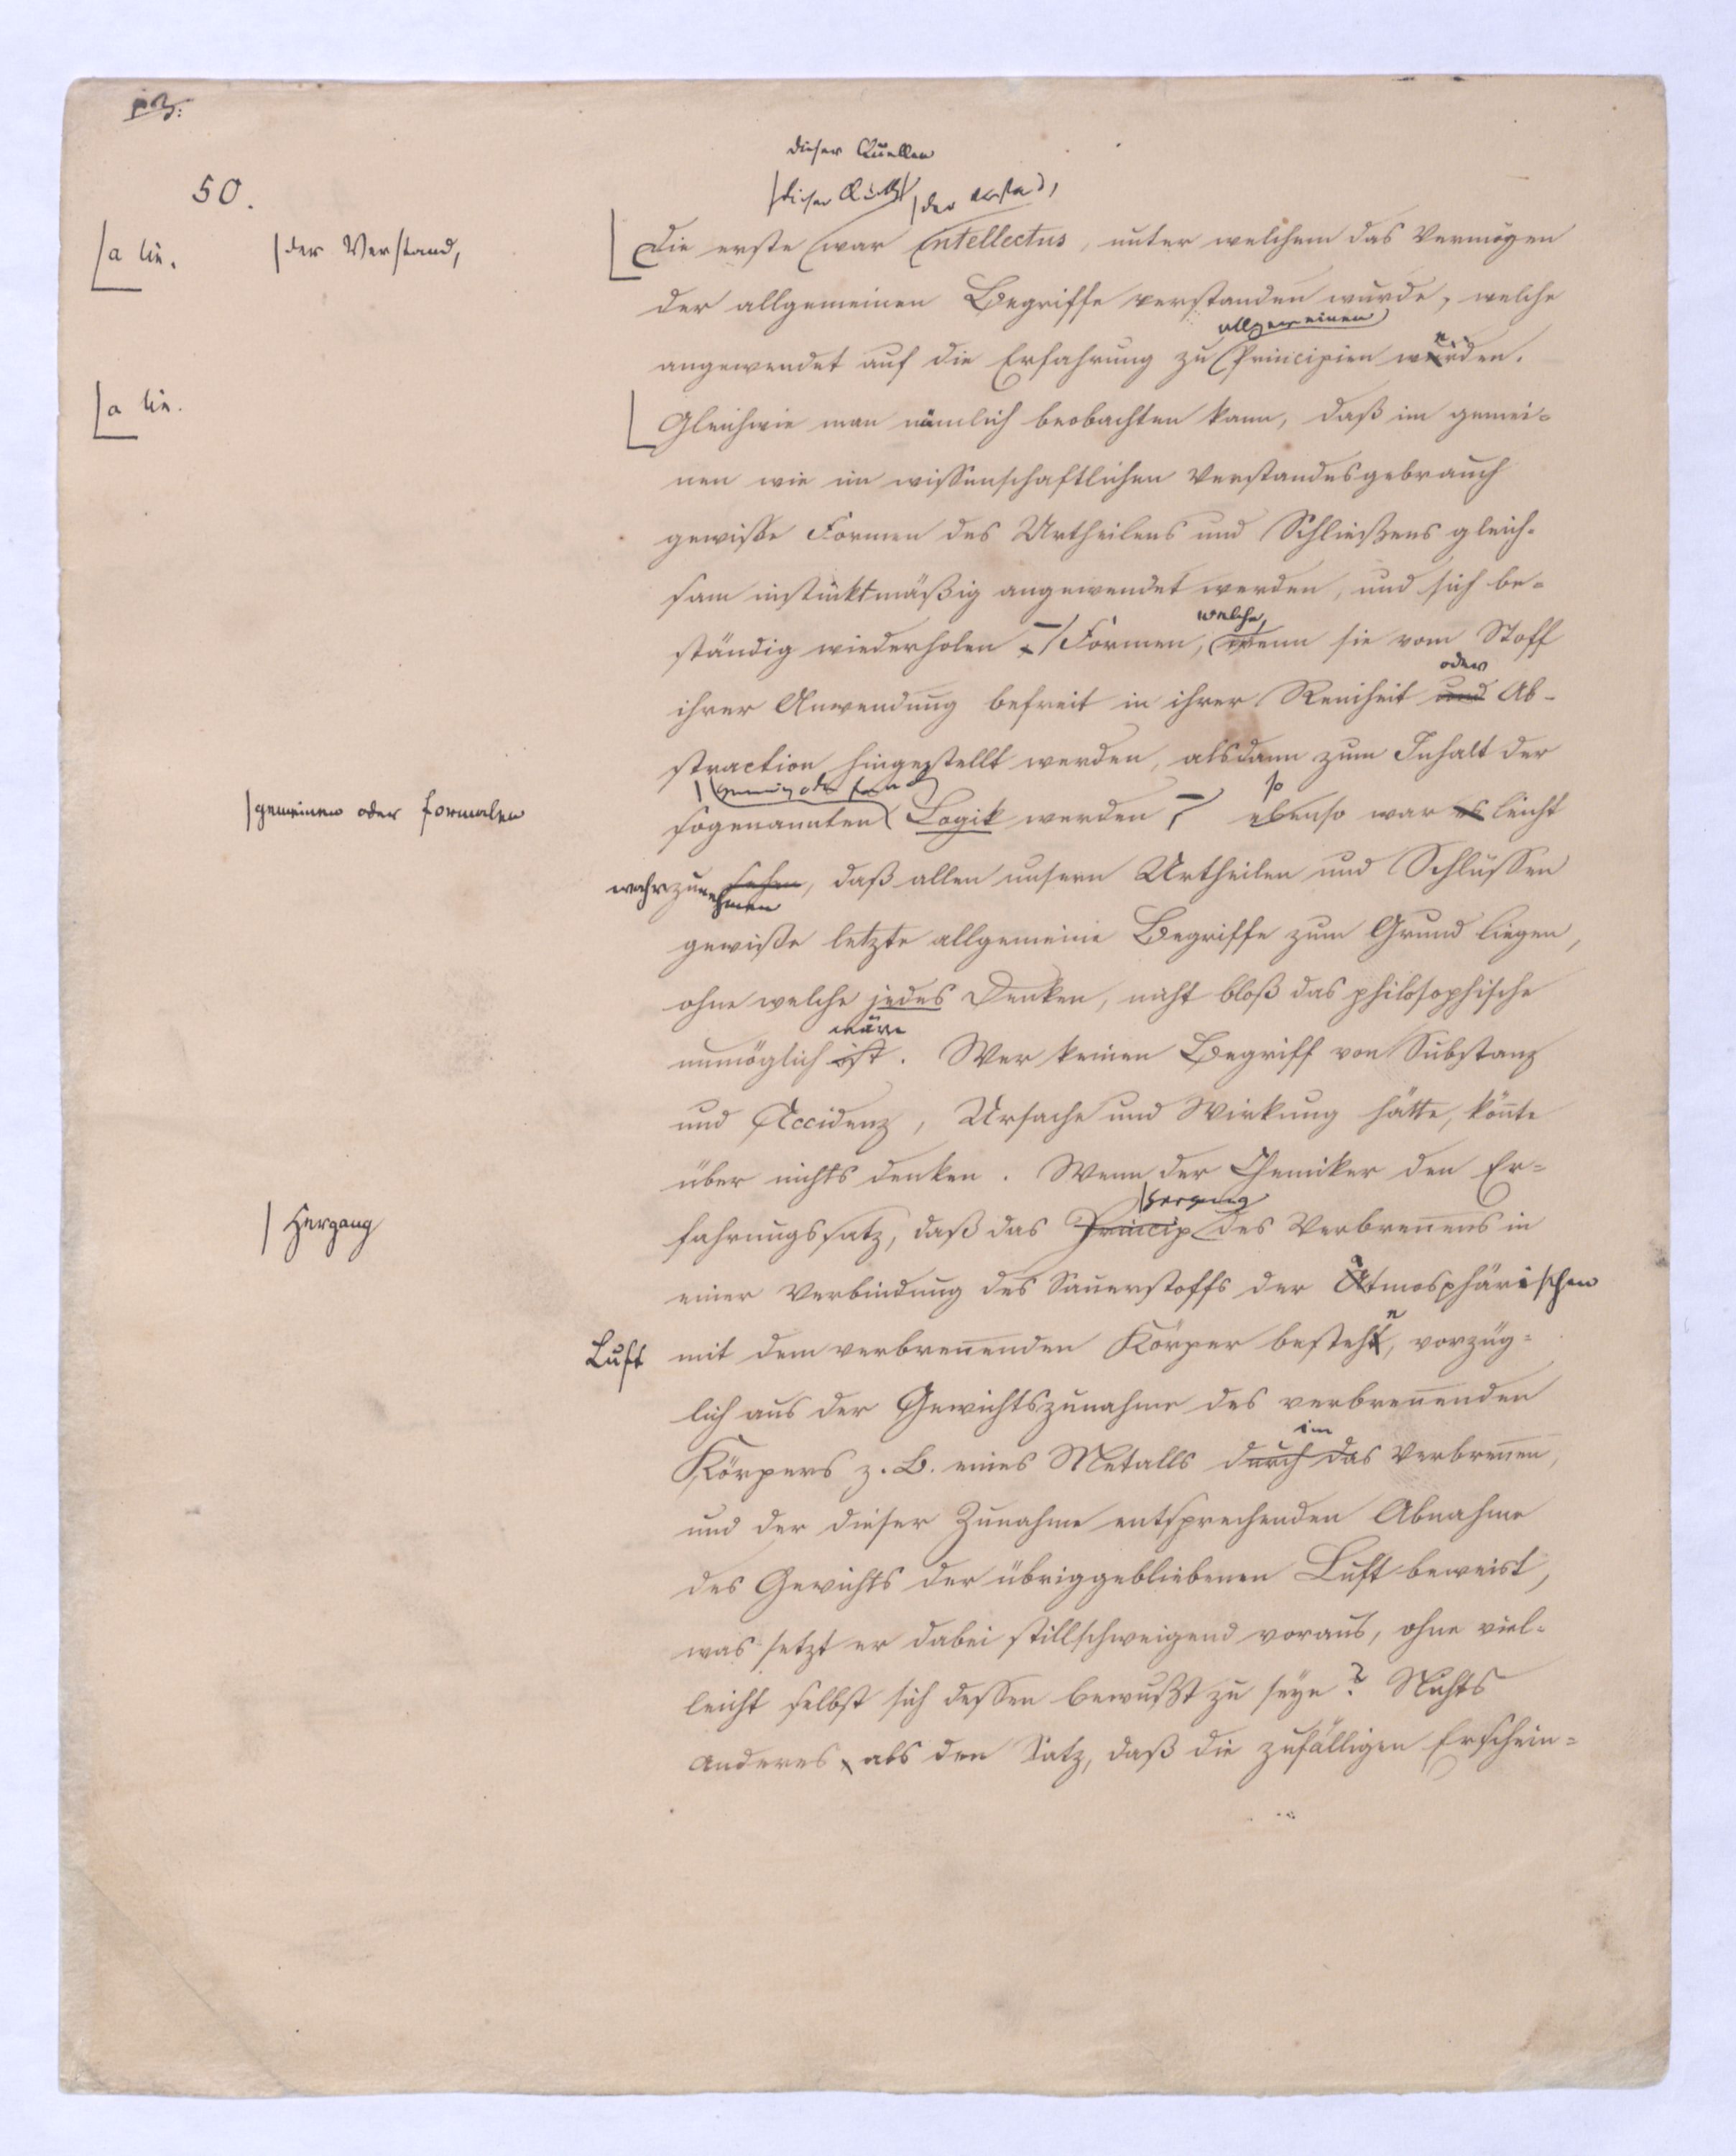 50.
dieser Quellen
|der Verstand,
[a lin.
|der Verstand,
Die erste war Intellectus, unter welchem das Vermögen
der allgemeinen Begriffe verstanden wurde, welche
allgemeinen
angewendet auf die Erfahrung zu Principien werden.
[a lin.
Gleichwie man nämlich beobachten kann, daß im gemei-
nen wie im wissenschaftlichen Verstandesgebrauch
gewisse Formen des Urtheilens und Schließens gleich-
sam instinktmäßig angewendet werden, und sich be-
welche,
ständig wiederholen – Formen, wenn sie vom Stoff
oder
ihrer Anwendung befreit in ihrer Reinheit und Ab-
straction hingestellt werden, alsdann zum Inhalt der
|gemeinen oder formalen
so
sogenannten Logik werden – ebenso war es leicht
wahrzunehmen sehen, daß allen unsern Urtheilen und Schlüssen
gewisse letzte allgemeine Begriffe zum Grund liegen,
ohne welche jedes Denken, nicht bloß das philosophische
wäre
unmöglich ist. Wer keinen Begriff von Substanz
und Accidenz, Ursache und Wirkung hätte, könnte
über nichts denken. Wenn der Chemiker den Er-
|Hergang
|Hergang
fahrungssatz, daß das Princip des Verbrennens in
einer Verbindung des Sauerstoffs der atmosphärischen
Luft mit dem verbrennenden Körper besteht, vorzüg-
lich aus der Gewichtszunahme des verbrennenden
im
Körpers z. B. eines Metalls durch das Verbrennen,
und der dieser Zunahme entsprechenden Abnahme
des Gewichts der übriggebliebenen Luft beweist,
was setzt er dabei stillschweigend voraus, ohne viel-
leicht selbst sich dessen bewußt zu seyn? Nichts
Anderes als den Satz, daß die zufälligen Erschein-